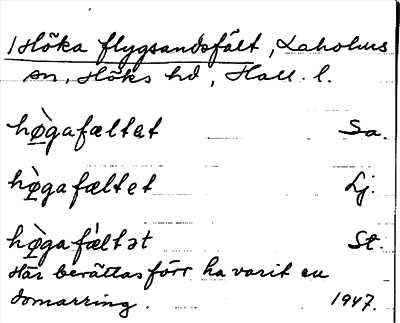 1 Höka flygsandsfält, Laholms
sn, Höks hd, Hall. l.
hø̀gafæltət Sa.
hø̀gafæltet Lj.
hø̀gafæ̀ltət St.
Här berättas förr ha varit en
domarring. 1947.